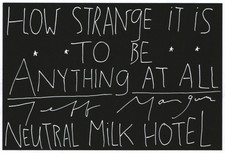 HOW STRANGE IT IS
* * TO BE * *
ANYTHING AT ALL
Jeff Mangum
NEUTRAL MILK HOTEL